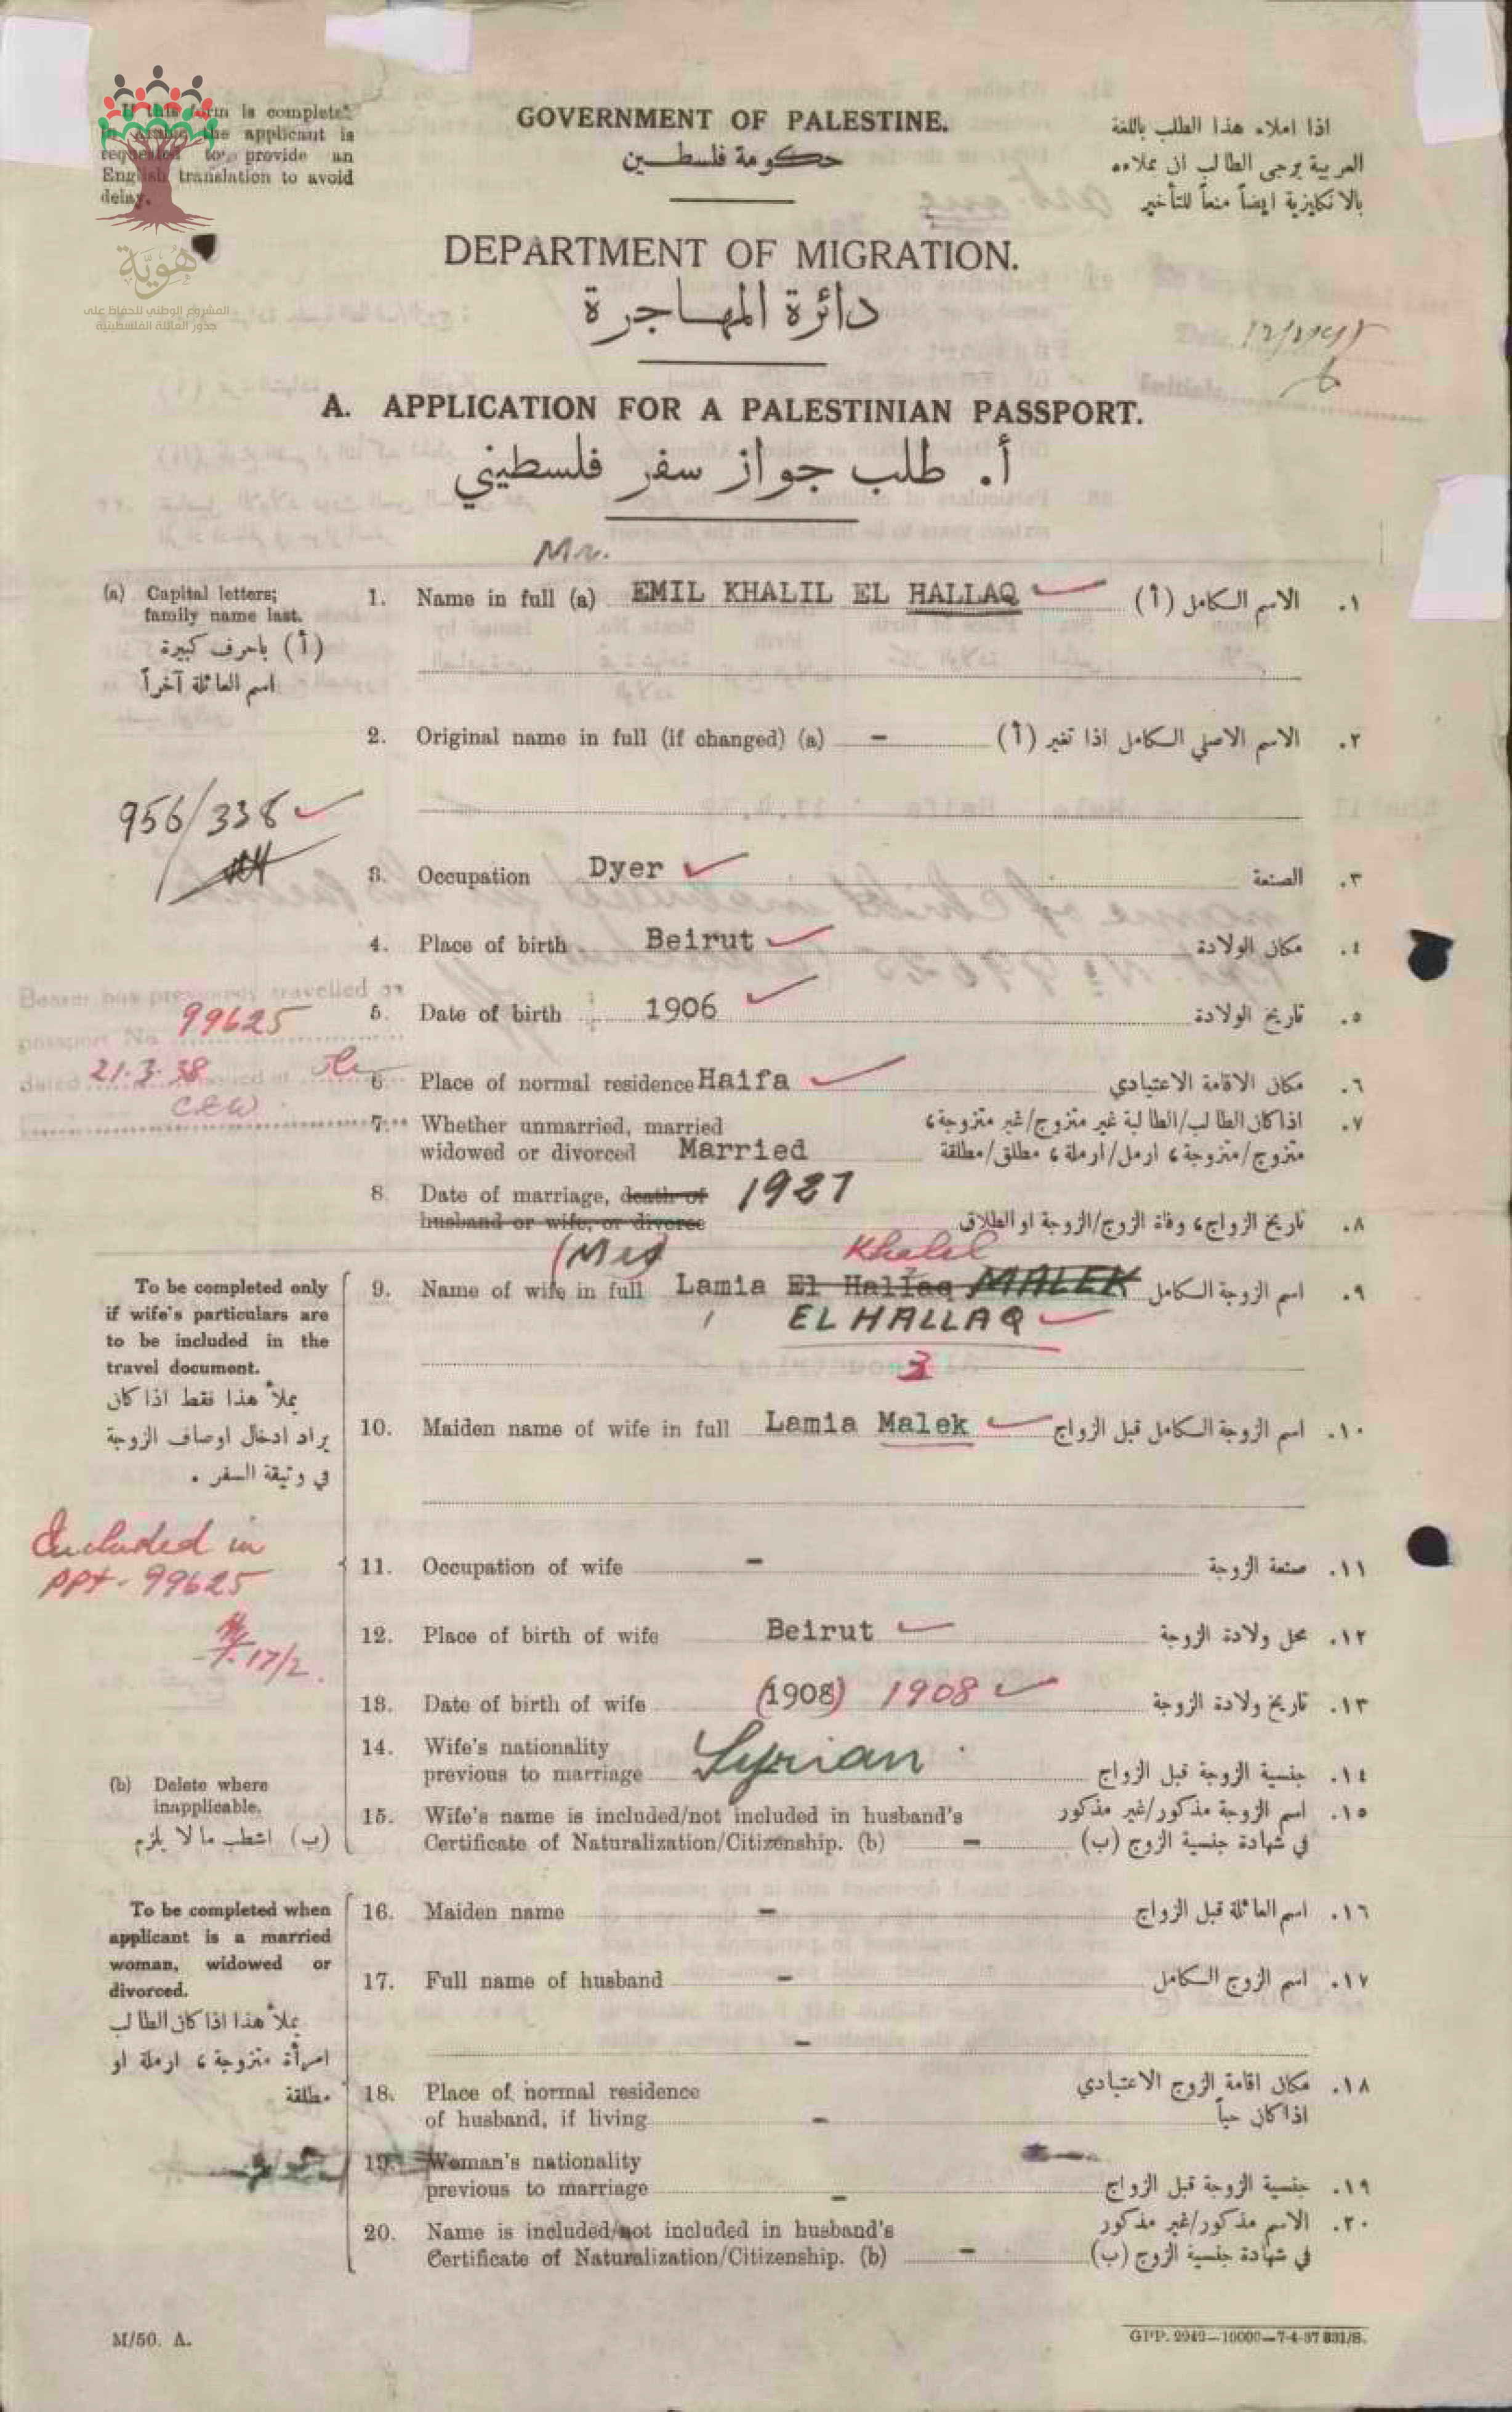 If this form is completed
in Arabic the applicant is
requested to provide an
English translation to avoid
delay.
هُويَّة
المشروع الوطني للحفاظ على
جذور العائلة الفلسطينية
GOVERNMENT OF PALESTINE.
حكومة فلسطين
اذا املاء هذا الطلب باللغة
العربية يرجى الطالب ان يملاءه
بالانكليزية ايضاً منعاً للتأخير
DEPARTMENT OF MIGRATION.
دائرة المهاجرة
Date
Initials
A. APPLICATION FOR A PALESTINIAN PASSPORT.
أ. طلب جواز سفر فلسطيني
Mr.
(a) Capital letters;
family name last.
(أ) باحرف كبيرة
اسم العائلة آخراً
1. Name in full (a) EMIL KHALIL EL HALLAQ الاسم الكامل (أ) ١.
2. Original name in full (if changed) (a) - الاسم الاصلي الكامل اذا تغير (أ) ٢.
956/338
3. Occupation Dyer الصنعة ٣.
4. Place of birth Beirut مكان الولادة ٤.
Bearer has previously travelled on
passport No. 99625
dated 21.3.38 issued at
5. Date of birth 1906 تاريخ الولادة ٥.
6. Place of normal residence Haifa مكان الاقامة الاعتيادي ٦.
7. Whether unmarried, married
widowed or divorced Married
اذا كان الطالب/الطالبة غير متزوج/غير متزوجة، ٧.
متزوج/متزوجة، ارمل/ارملة، مطلق/مطلقة
8. Date of marriage, death of 1927
husband or wife, or divorce تاريخ الزواج، وفاة الزوج/الزوجة او الطلاق ٨.
To be completed only
if wife's particulars are
to be included in the
travel document.
يملأ هذا فقط اذا كان
يراد ادخال اوصاف الزوجة
في وثيقة السفر .
(Mrs) Khalil
9. Name of wife in full Lamia El Hallaq MALEK اسم الزوجة الكامل ٩.
EL HALLAQ
3
10. Maiden name of wife in full Lamia Malek اسم الزوجة الكامل قبل الزواج ١٠.
Included in
PPt - 99625
17/2.
11. Occupation of wife - صنعة الزوجة ١١.
12. Place of birth of wife Beirut محل ولادة الزوجة ١٢.
13. Date of birth of wife (1908) 1908 تاريخ ولادة الزوجة ١٣.
14. Wife's nationality
previous to marriage Syrian جنسية الزوجة قبل الزواج ١٤.
(b) Delete where
inapplicable.
(ب) اشطب ما لا يلزم
15. Wife's name is included/not included in husband's اسم الزوجة مذكور/غير مذكور ١٥.
Certificate of Naturalization/Citizenship. (b) - في شهادة جنسية الزوج (ب)
To be completed when
applicant is a married
woman, widowed or
divorced.
يملأ هذا اذا كان الطالب
امرأة متزوجة، ارملة او
مطلقة
16. Maiden name - اسم العائلة قبل الزواج ١٦.
17. Full name of husband - اسم الزوج الكامل ١٧.
-
18. Place of normal residence مكان اقامة الزوج الاعتيادي ١٨.
of husband, if living - اذا كان حياً
19. Woman's nationality
previous to marriage - جنسية الزوجة قبل الزواج ١٩.
20. Name is included/not included in husband's الاسم مذكور/غير مذكور ٢٠.
Certificate of Naturalization/Citizenship. (b) - في شهادة جنسية الزوج (ب)
M/50. A.
GPP. 2942—10000—7-4-37 331/S.